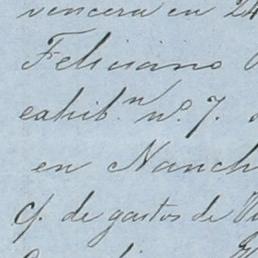 vencera en 24
Feliciano
exhib.n nº. 7.
en Nanch
c/. de gastos de